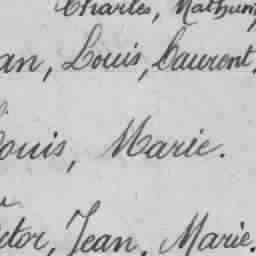 Charles, Mathurin
an, Louis, Laurent,
ouis, Marie.
ctor, Jean, Marie.